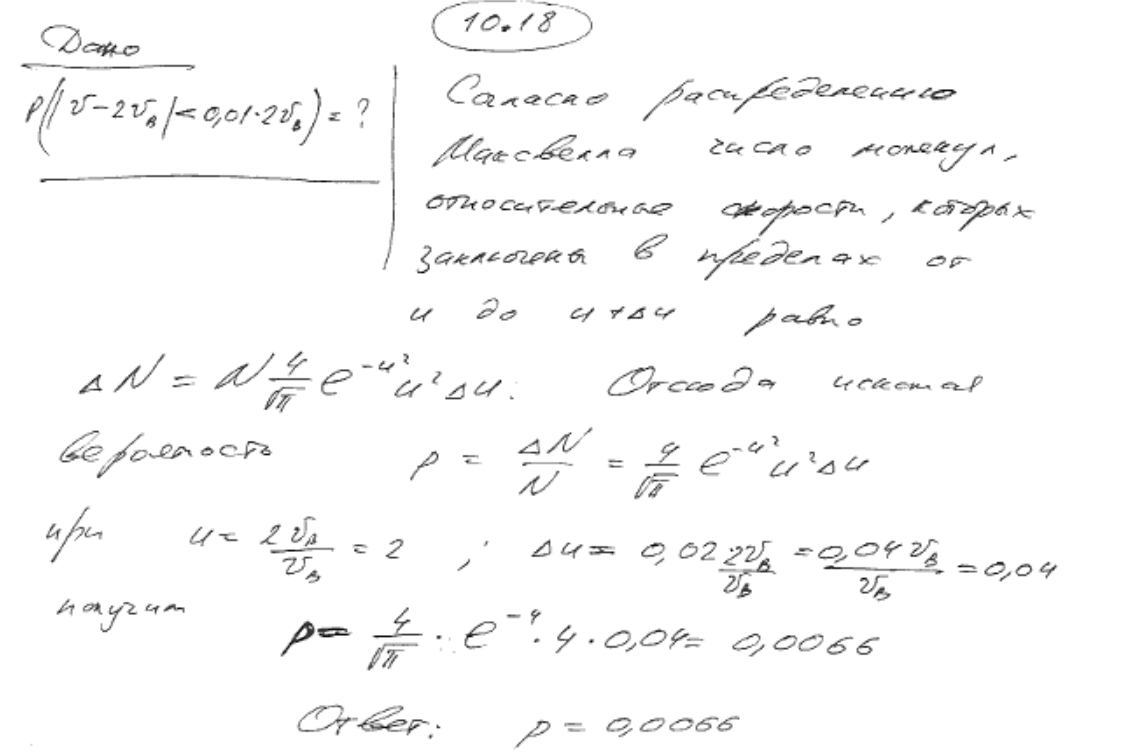 10.18
Дано
P(|v-2v_в|<0,01·2v_в)=?
Согласно распределению
Максвелла число молекул,
относительные скорости, которых
заключены в пределах от
u до u+Δu равно
ΔN = N 4/√π e^(-u²) u² Δu. Отсюда искомая
вероятность p = ΔN/N = 4/√π e^(-u²) u² Δu
при u = 2v_в/v_в = 2 ; Δu = 0,02 2v_в/v_в = 0,04v_в/v_в = 0,04
получим
p = 4/√π · e^(-4) · 4 · 0,04 = 0,0066
Ответ: p = 0,0066